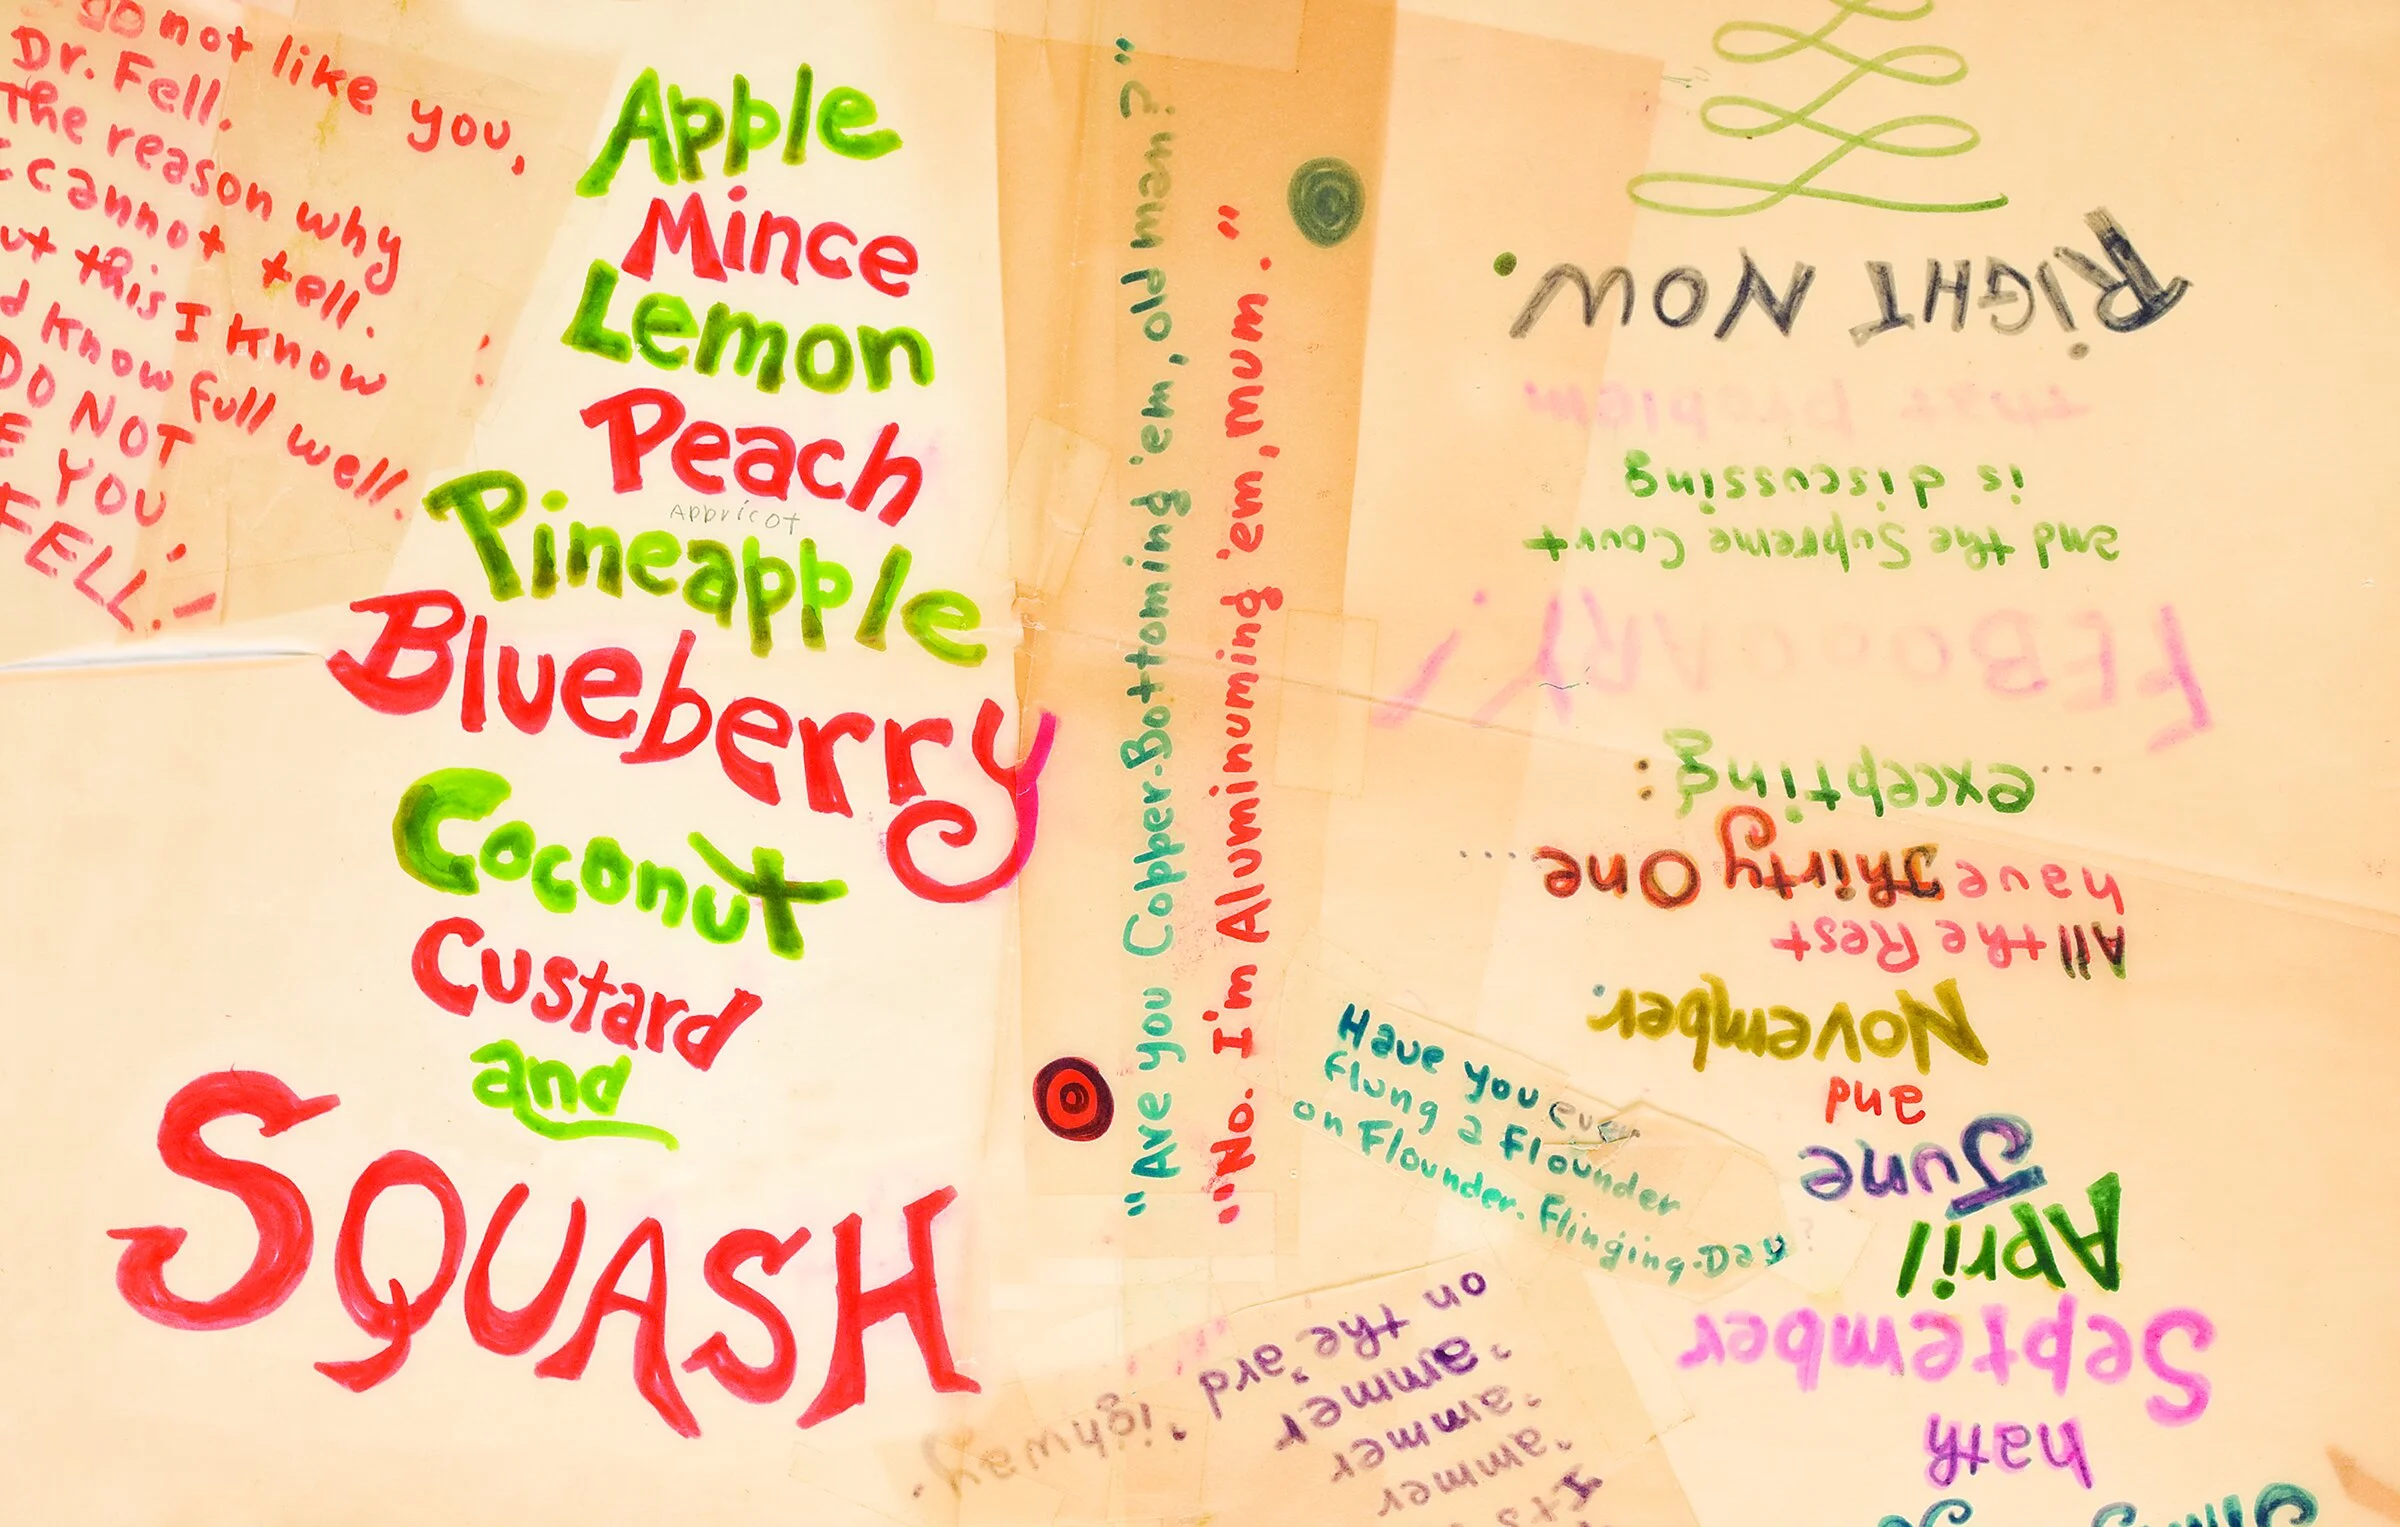 go not like you,
Dr. Fell.
The reason why
I cannot tell.
ut this I know
d know full well.
DO NOT
E YOU,
FELL!
Apple
Mince
Lemon
Peach
Appricot
Pineapple
Blueberry
Coconut
Custard
and
SQUASH
"Are you Copper-Bottoming 'em, old man?"
"No. I'm Aluminuming 'em, mum."
Have you ever
flung a Flounder
on Flounder-Flinging-Day?
It's
'ammer
'ammer
'ammer
on the 'ard 'ighway.
hath
September
April
June
and
November.
All the Rest
have Thirty One...
...excepting:
FEBOOARY!
and the Supreme Court
is discussing
that problem
RIGHT NOW.